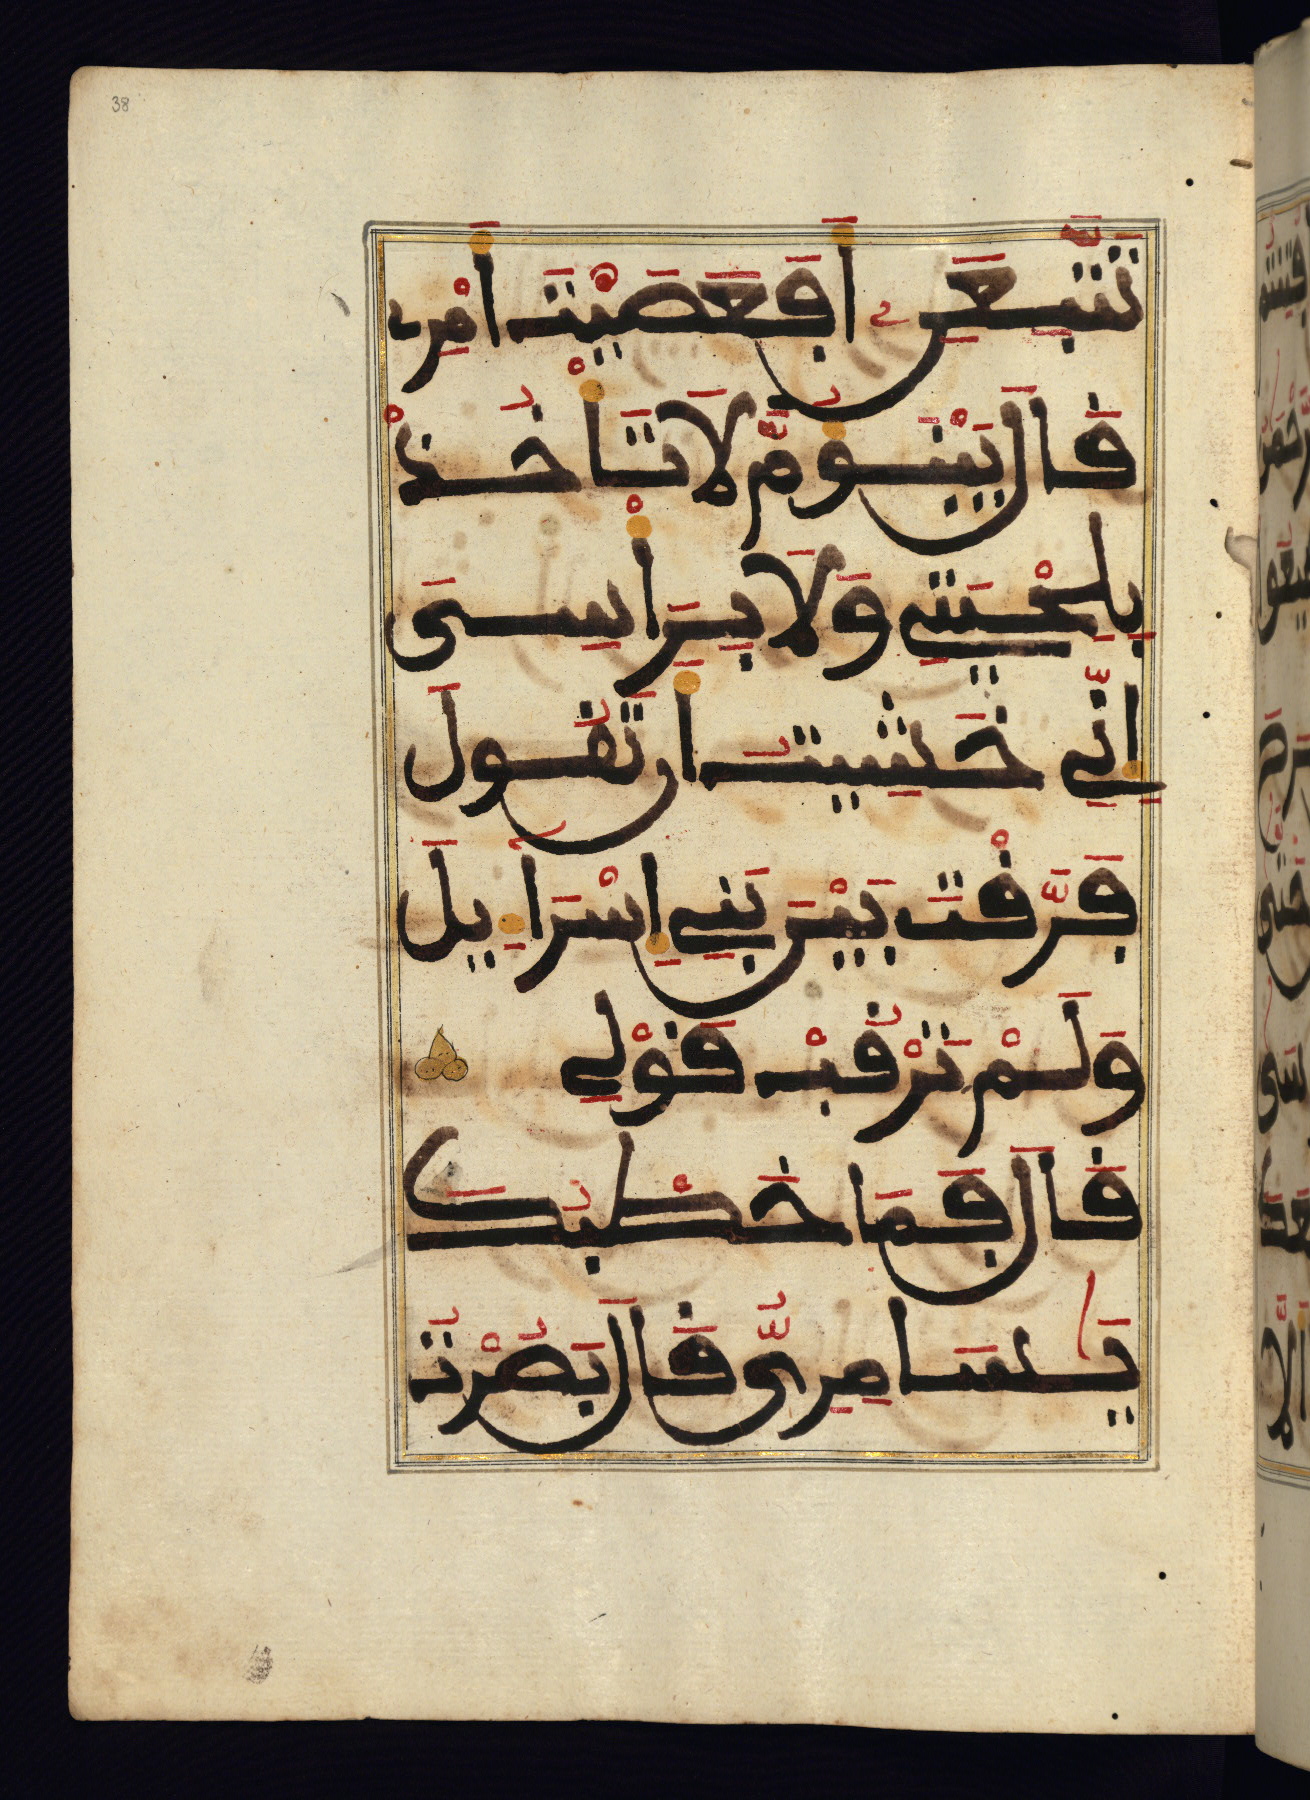 38
تَتَّبِعَنِۦ أَفَعَصَيْتَ أَمْرِے
قَالَ يَبْنَؤُمَّ لَا تَأْخُذْ
بِلِحْيَتِے وَلَا بِرَأْسِىَ
إِنِّے خَشِيتُ أَن تَقُولَ
فَرَّقْتَ بَيْنَ بَنِے إِسْرَآءِيلَ
وَلَمْ تَرْقُبْ قَوْلِے
قَالَ فَمَا خَطْبُكَ
يَٰسَامِرِىُّ قَالَ بَصُرْتُ